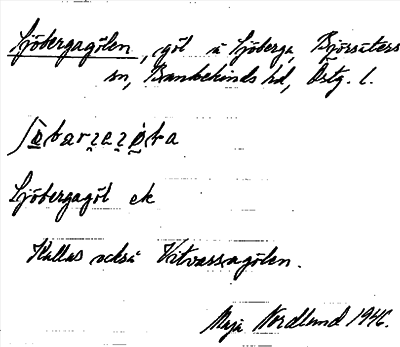 Sjöbergagölen, göl i Sjöberga, Björsäters
sn, Bankekinds hd, Östg. l.
Sjöbergagöl ek
Kallas också Vitvassagölen.
Maja Nordlund 1946.